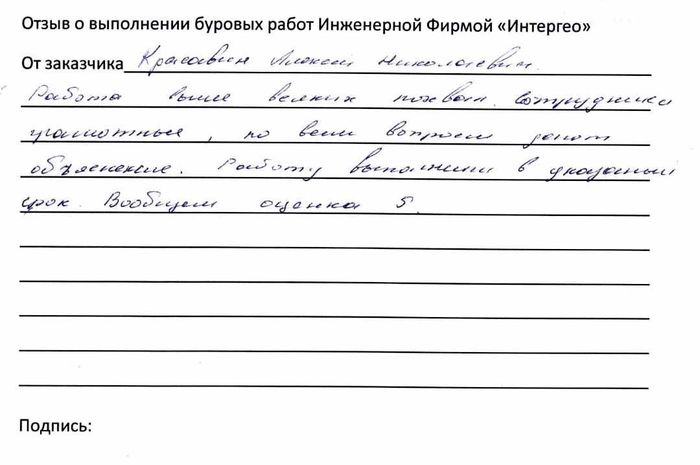 Отзыв о выполнении буровых работ Инженерной Фирмой «Интергео»
От заказчика Красавин Алексей Николаевич.
Работа выше всяких похвал. Сотрудники
грамотные, по всем вопросам дают
объяснение. Работу выполнили в указанный
срок. Вообщем оценка 5.
Подпись: